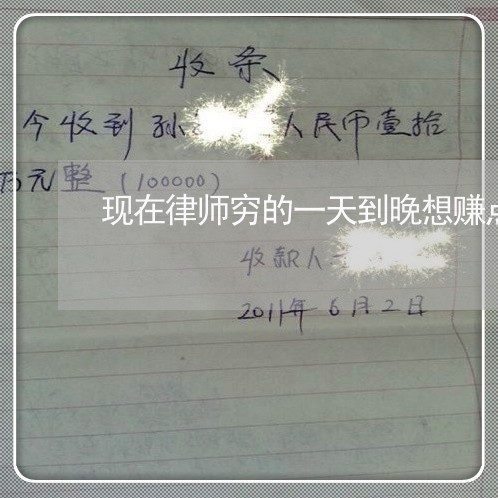 收条
今收到孙 人民币壹拾
万元整(100000)
现在律师穷的一天到晚想赚点
收款人
2011年6月2日